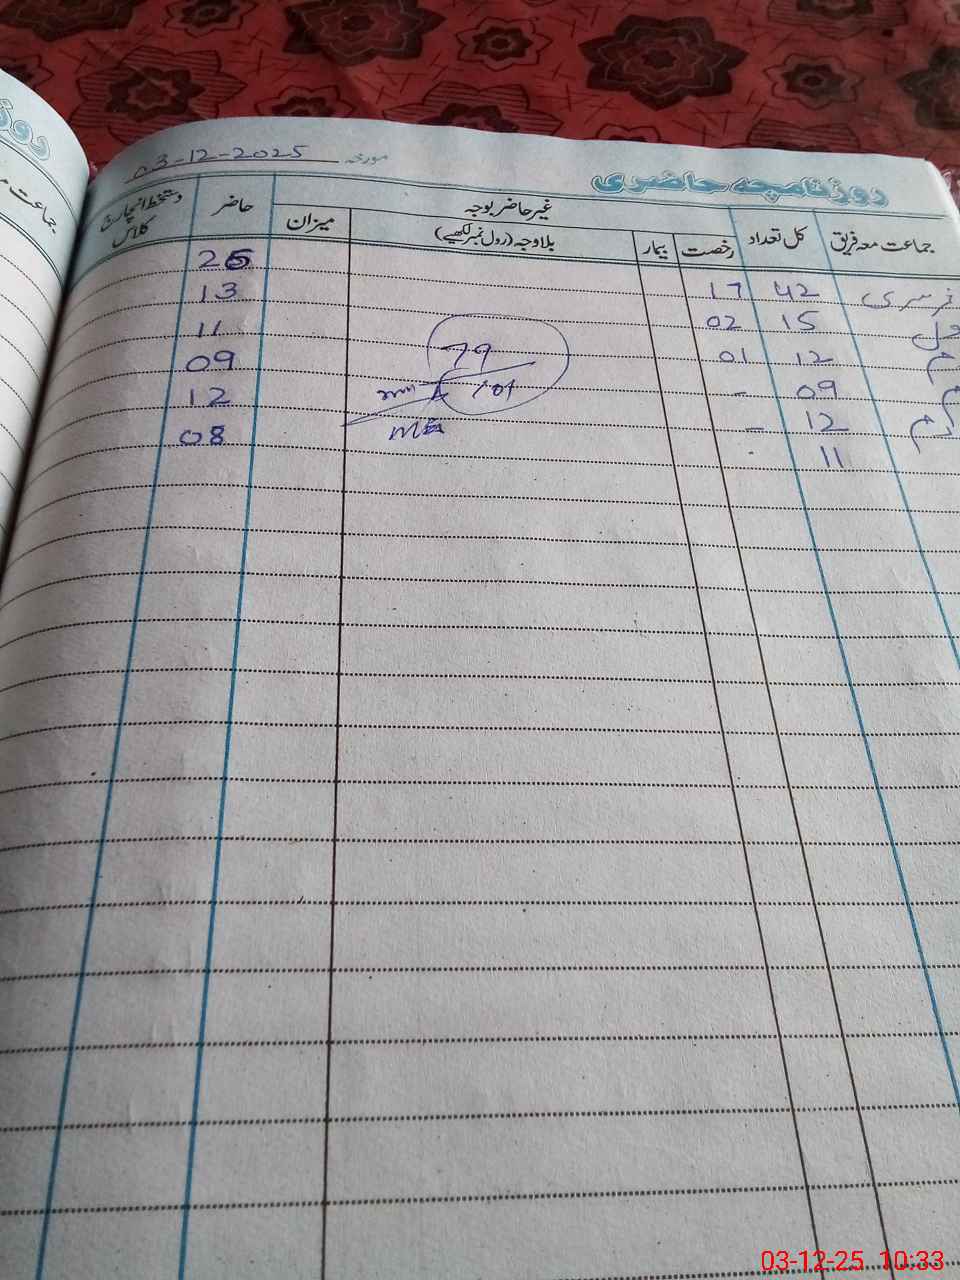 روزنامچہ حاضری
مورخہ 03-12-2025
جماعت معہ فریق کل تعداد رخصت بیمار غیر حاضر بوجہ بلاوجہ (رول نمبر لکھیے) میزان حاضر دستخط انچارج کلاس
نرسری 42 17 25
اول 15 02 13
12 01 11
09 - 09
12 - 12
11 08
79
101
جماعت
03-12-25 10:33